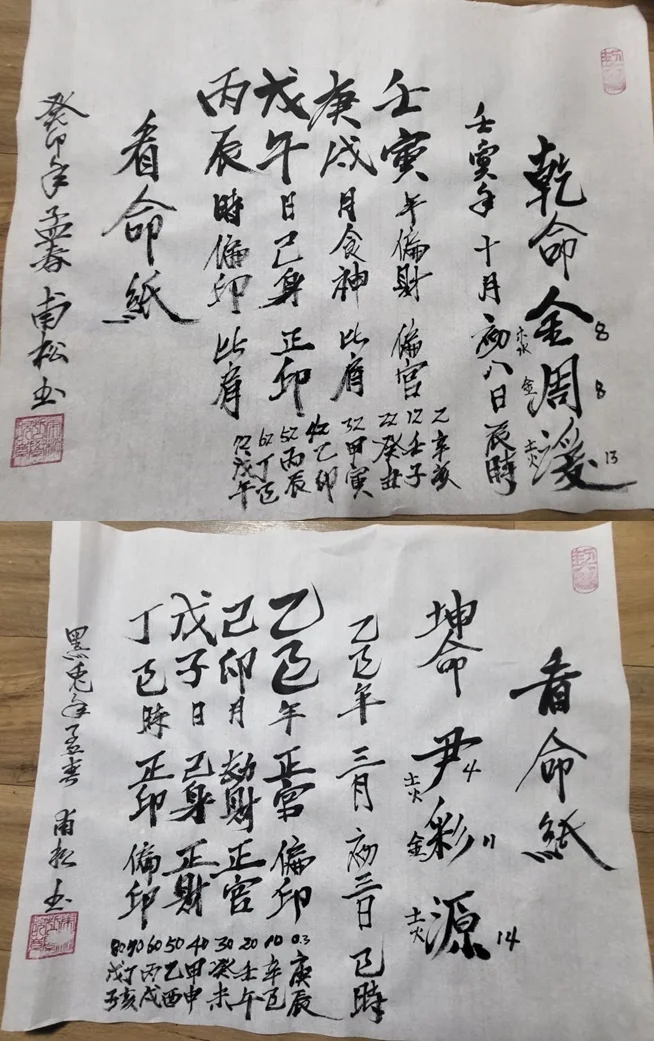 乾命 金8 周8 湲13
木水
金
土火
壬寅年 十月 初八日 辰時
壬寅年偏財 偏官
庚戌月食神 比肩
戊午日己身 正印
丙辰時偏印 比肩
2 辛亥
12 壬子
22 癸丑
32 甲寅
42 乙卯
52 丙辰
62 丁巳
72 戊午
看命紙
癸卯年孟春 南松書
看命紙
坤命 尹4 彩11 源14
土火
金
土火
乙巳年 三月 初三日 巳時
乙巳年 正官 偏印
己卯月 劫財 正官
戊子日 己身 正財
丁巳時 正印 偏印
0.3 庚辰
10 辛巳
20 壬午
30 癸未
40 甲申
50 乙酉
60 丙戌
70 丁亥
80 戊子
黑兎年孟春 南松書